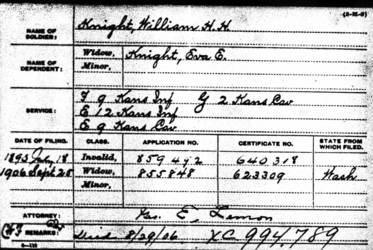 (3-M-9)
NAME OF SOLDIER: Knight, William H. H.
NAME OF DEPENDENT: Widow, Knight, Eva E.
Minor,
SERVICE: F 9 Kans Inf G 2 Kans Cav
E 12 Kans Inf
E 9 Kans Cav
DATE OF FILING. CLASS. APPLICATION NO. CERTIFICATE NO. STATE FROM WHICH FILED.
1893 July 18 Invalid, 640318
1906 Sept 28 Widow, 855848 623309 Wash
Minor,
ATTORNEY: E. Lemon
REMARKS: Died 8/29/06 XC 994789